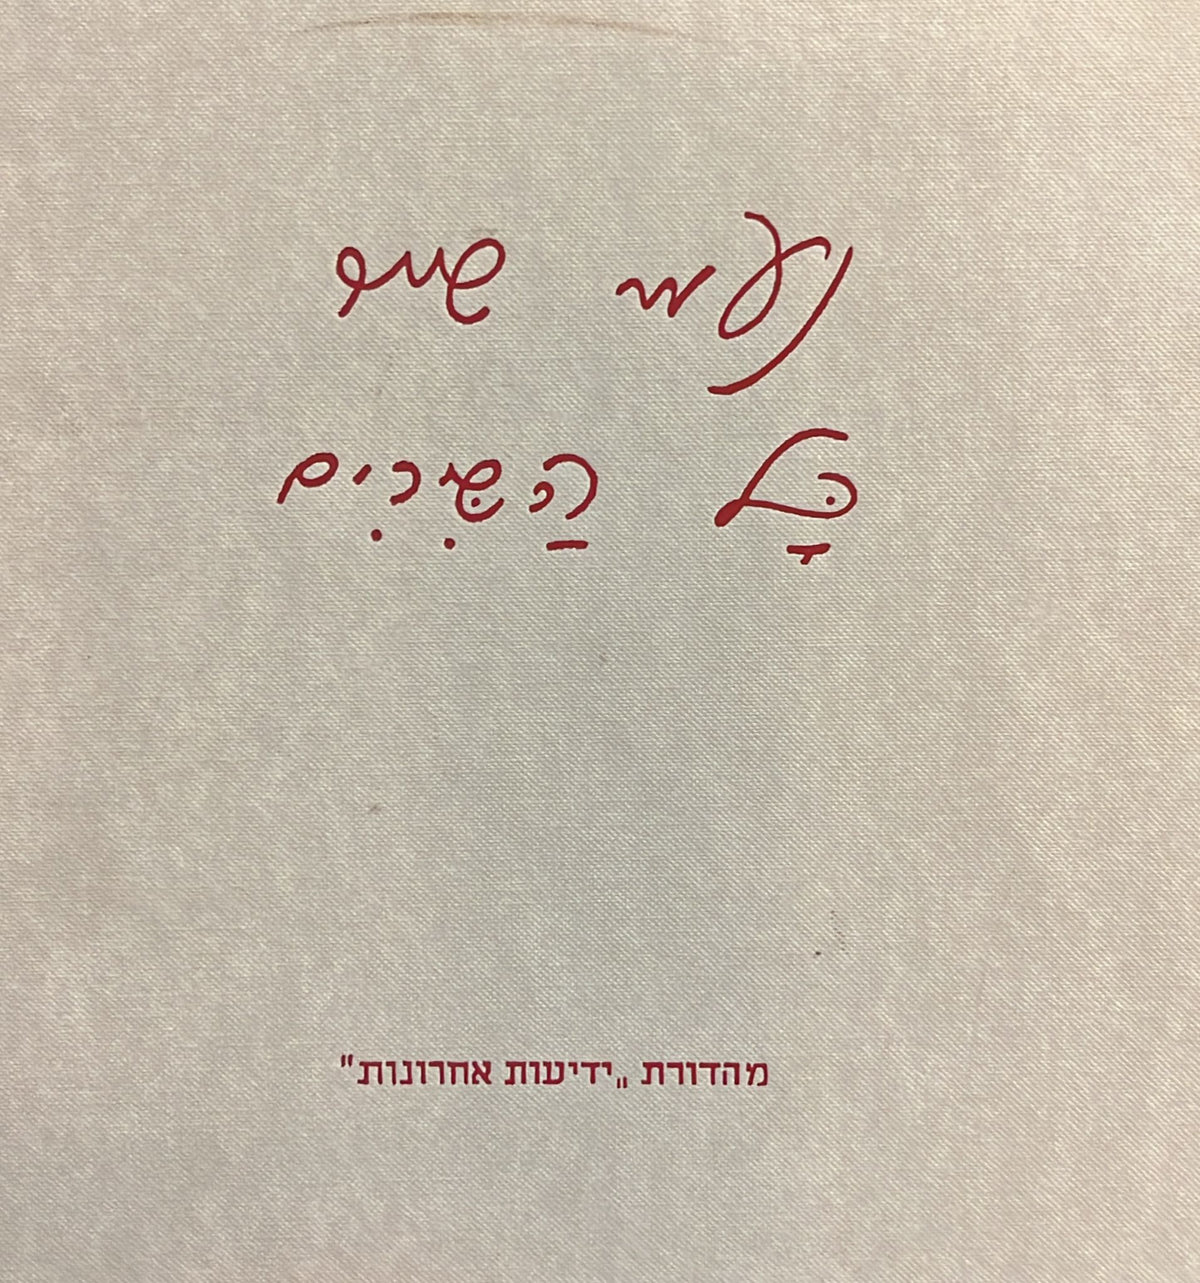 נעמי שמר
כָּל הַשִּׁירִים
מהדורת „ידיעות אחרונות"